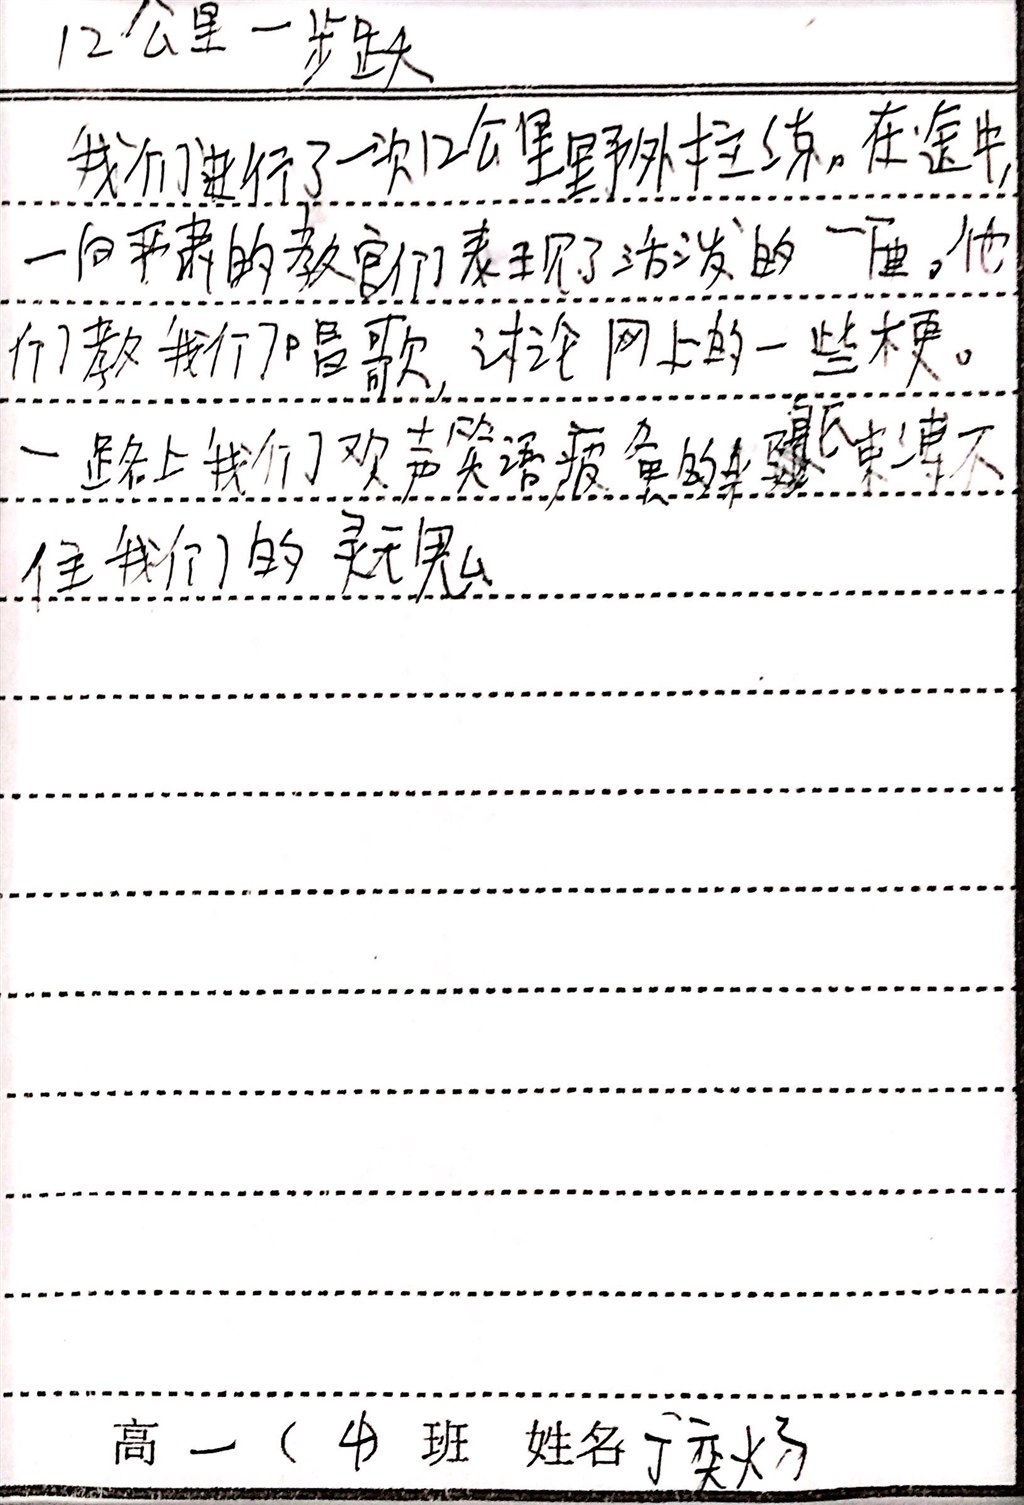 12公里一步跃
我们进行了一次12公里野外拉练。在途中,
一向严肃的教官们表现了活泼的一面。他
们教我们唱歌,讨论网上的一些梗。
一路上我们欢声笑语疲惫的束缚不
住我们的灵魂
高一(4)班 姓名丁奕炀